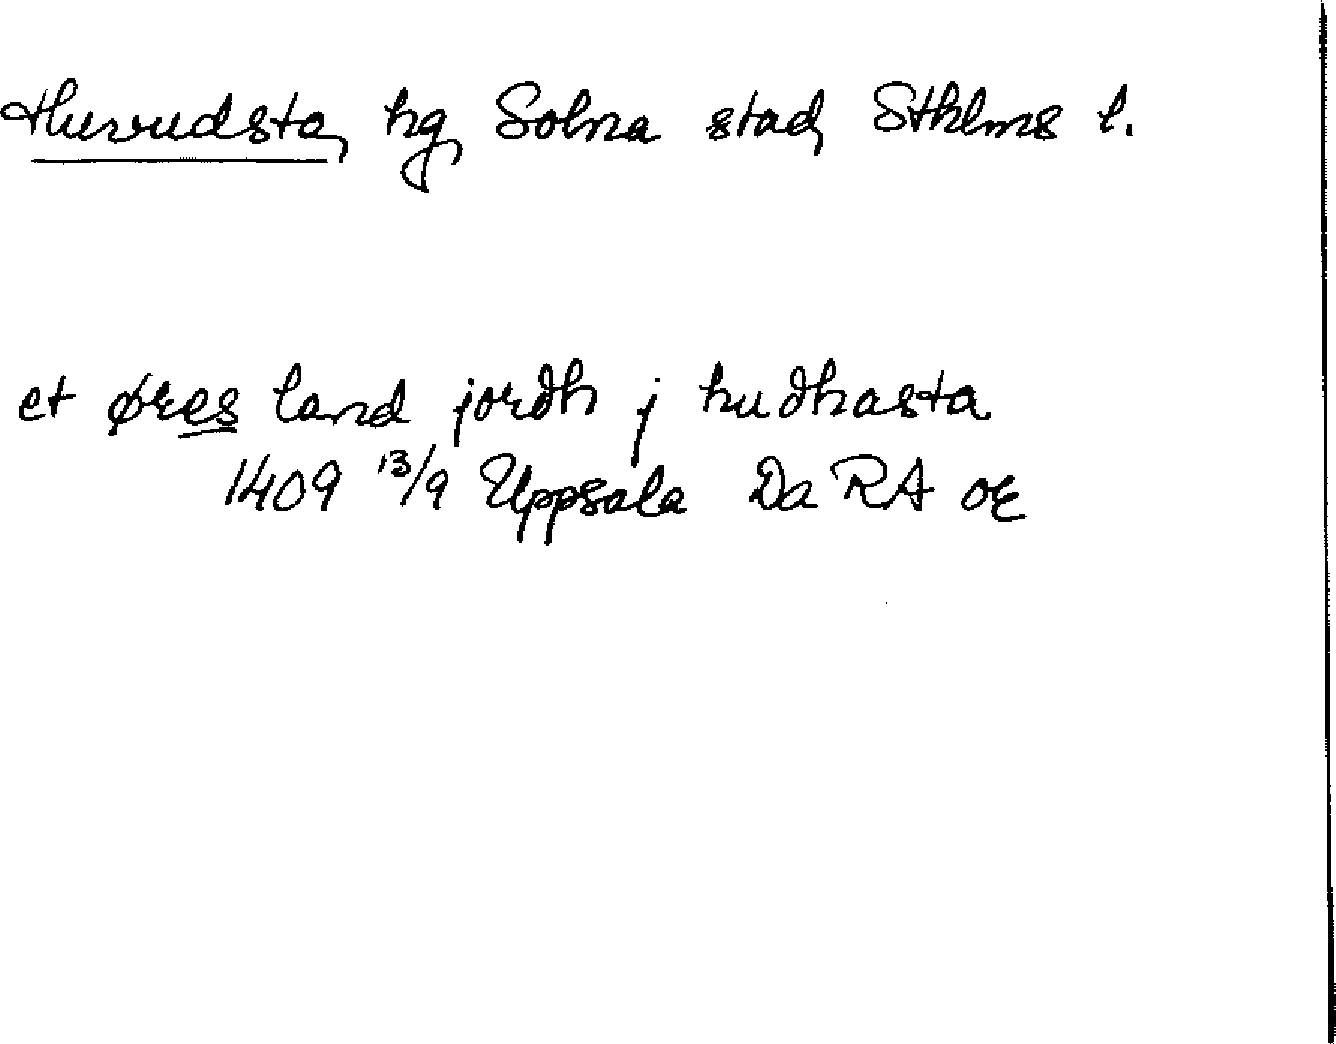 Huvudsta, hg, Solna stad, Sthlms l.
et øres land jordh j hudhasta
1409 13/9 Uppsala Da RA or